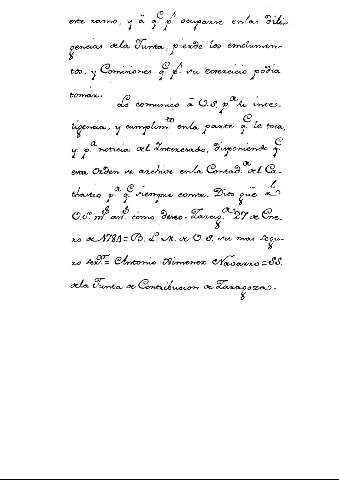 este ramo, y â q.^e p.^r ocuparse en las dili-
gencias de la Junta, pierde los emolumen-
tos, y Comisiones q.^e p.^r su exercicio podia
tomar.
Lo comunico â V.S. p.^a su inte-
ligencia, y cumplim.^to en la parte q.^e le toca,
y p.^a noticia del Interesado, disponiendo q.^e
esta Orden se archive en la Contad.^a del Ca-
thastro p.^a q.^e siempre conste. Dios gũe â
V.S. m.^s an.^s como deseo. Zarag.^a 27 de Ene-
ro de 1781 = B. L. M. de V. S. su mas segu-
ro ser.^r = Antonio Ximenez Navarro = SS.
de la Junta de Contribucion de Zaragoza.